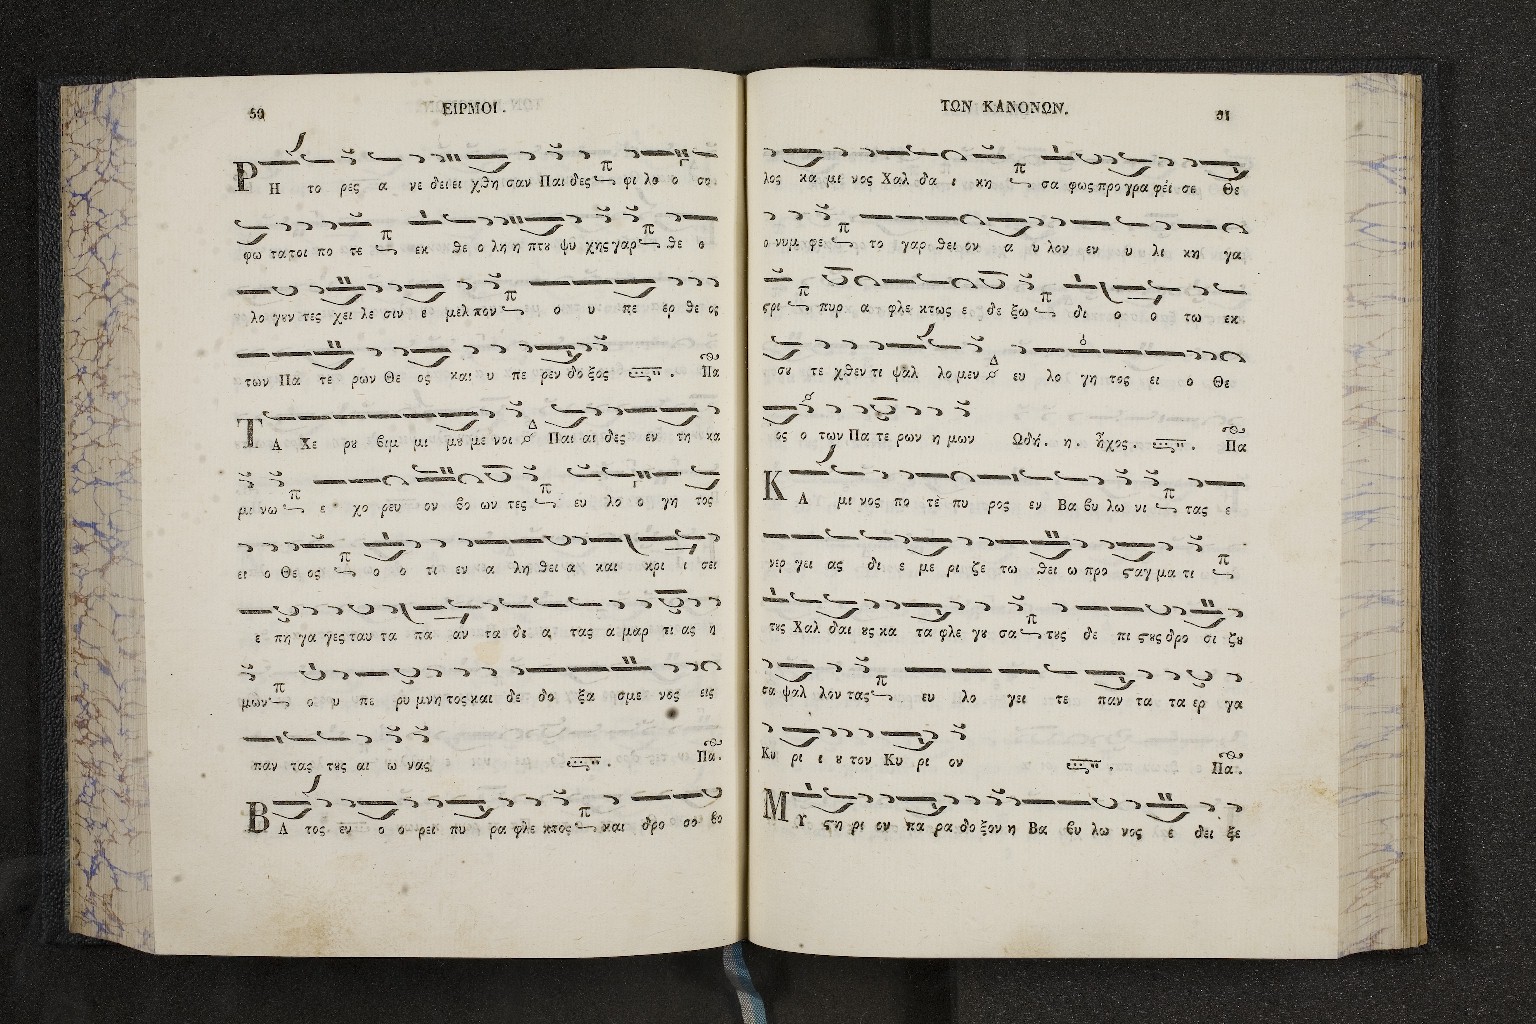 ΕΙΡΜΟΙ.
Ρ Η το ρες α νε δει ει χθη σαν Παι δες φι λο ο σο
φω τα τοι πο τε εκ θε ο λη η πτȣ ψυ χης γαρ θε ο
λο γȣν τες χει λε σιν ε μελ πον ο υ πε ερ θε ος
των Πα τε ρων Θε ος και υ πε ρεν δο ξος . Πα
Τ Α Χε ρȣ βιμ μι μȣ με νοι Παι αι δες εν τη κα
μι νω ε χο ρευ ον βο ων τες ευ λο ο γη τος
ει ο Θε ος ο ο τι εν α λη θει α και κρι ι σει
ε πη γα γες ταυ τα πα αν τα δι α τας α μαρ τι ας η
μων ο υ πε ρυ μνη τος και δε δο ξα σμε νος εις
παν τας τȣς αι ω νας . Πα.
Β Α τος εν ο ο ρει πυ ρα φλε κτος και δρο σο βο
ΤΩΝ ΚΑΝΟΝΩΝ.
λος κα μι νος Χαλ δα ι κη σα φως προ γρα φει σε Θε
ο νυμ φε το γαρ θει ον α υ λον εν υ λι κη γα
ϛρι πυρ α φλε κτως ε δε ξω δι ο ο τω εκ
σȣ τε χθεν τι ψαλ λο μεν ευ λο γη τος ει ο Θε
ος ο των Πα τε ρων η μων Ωδή. η. ἦχος . Πα
Κ Α μι νος πο τε πυ ρος εν Βα βυ λω νι τας ε
νερ γει ας δι ε με ρι ζε τω θει ω προ ϛαγ μα τι
τȣς Χαλ δαι ȣς κα τα φλε γȣ σα τȣς δε πι ϛȣς δρο σι ζȣ
σα ψαλ λον τας ευ λο γει τε παν τα τα ερ γα
Κυ ρι ι ȣ τον Κυ ρι ον . Πα.
Μ Υ ϛη ρι ον πα ρα δο ξον η Βα βυ λω νος ε δει ξε